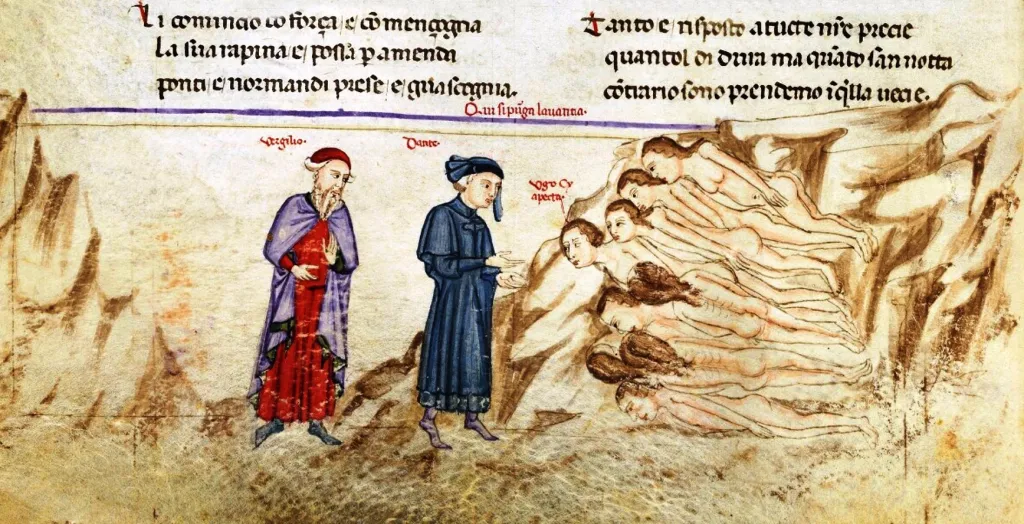 Li comincio co força / e cõ mençogna
la sua rapina / e / posta p amenda
ponti / e normandi prese / e guascogna.
Tanto e / risposto a tucte nr̃e preçe
quantol di dura ma quãdo san notta
cõtrario sono prendemo ĩ q̃lla veçe.
Qui si pũgn lavaritia.
Vergilio.
Dante.
Vgo Cy
apecta.